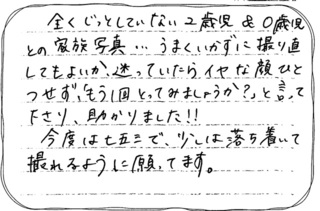 全くじっとしていない2歳児&0歳児
との家族写真…うまくいかずに撮り直
してもよいか、迷っていたらイヤな顔ひと
つせず、「もう1回とってみましょうか?」と言って
下さり、助かりました!!
今度は七五三で、少しは落ち着いて
撮れるように願ってます。